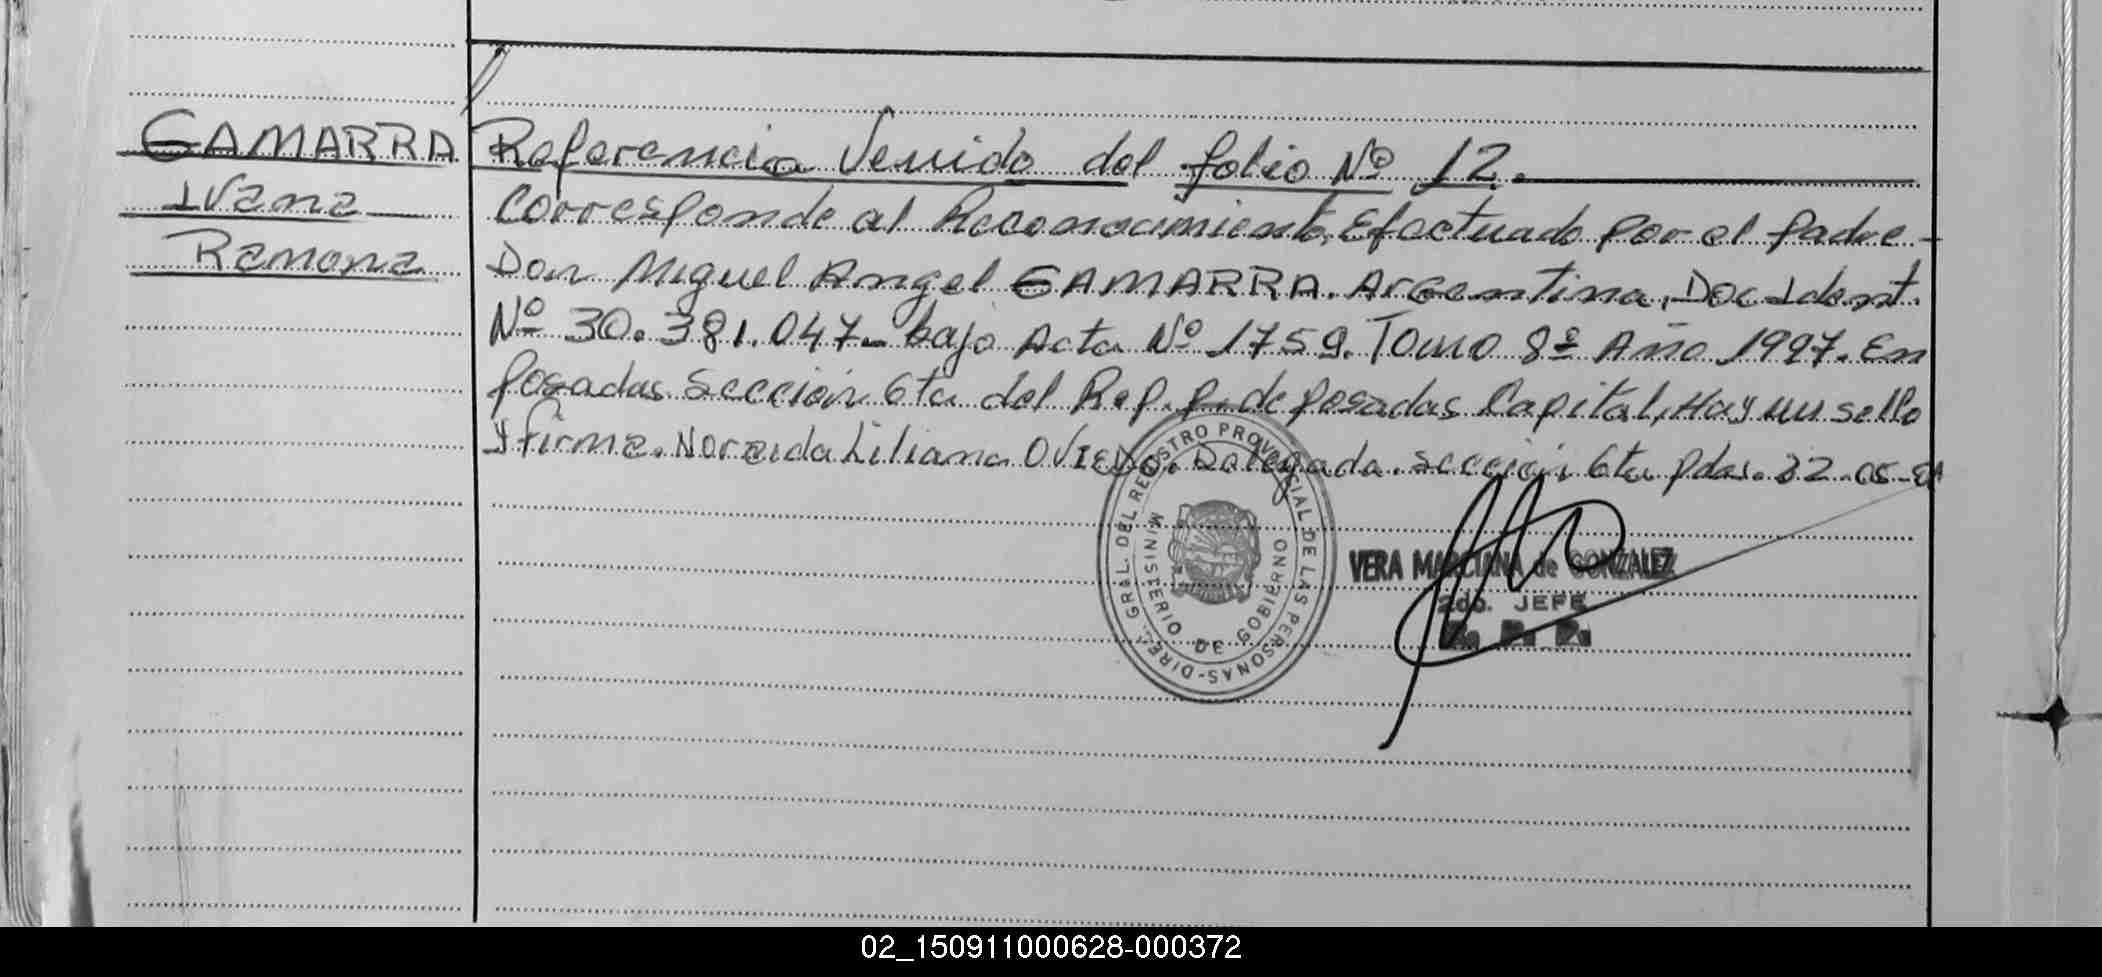 GAMARRA
Ivana
Ramona
Referencia Venida del folio Nº 12.
Corresponde al Reconocimiento, Efectuado por el padre -
Don Miguel Angel GAMARRA. Argentina, Doc Ident.
Nº 30.381.047 - bajo Acta Nº 1759. Tomo 8º Año 1997. En
Posadas. Sección 6ta del Rep. P. de Posadas Capital, Hay un sello
y firma. Noraida Liliana OVIEDO. Delegada. Sección 6ta Pdas.
DIREC. GRAL. DEL REGISTRO PROVINCIAL DE LAS PERSONAS-
MINISTERIO DE GOBIERNO
VERA MARCIANA de GONZALEZ
2do. JEFE
R. P. P.
02_150911000628-000372